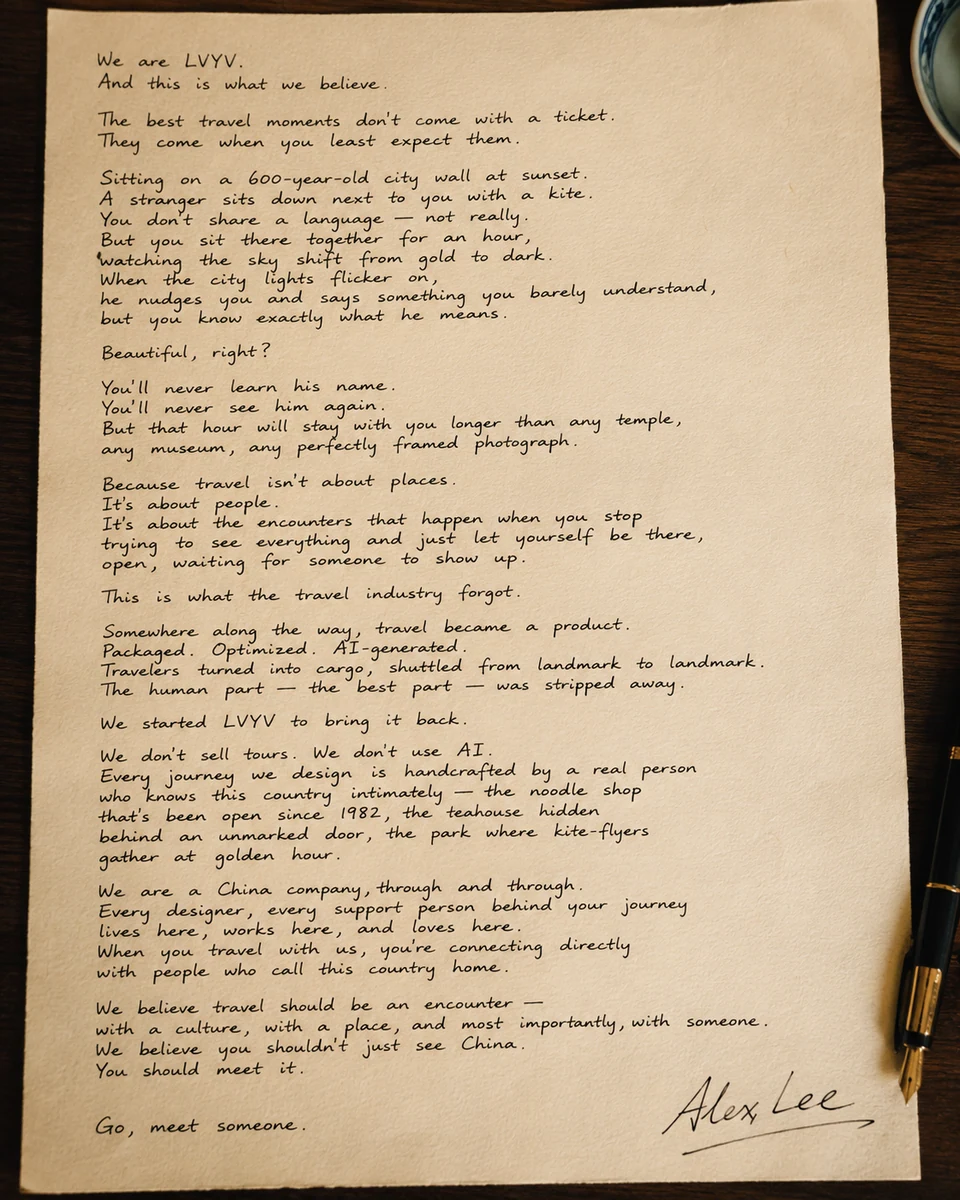 We are LVYV.
And this is what we believe.
The best travel moments don't come with a ticket.
They come when you least expect them.
Sitting on a 600-year-old city wall at sunset.
A stranger sits down next to you with a kite.
You don't share a language — not really.
But you sit there together for an hour,
watching the sky shift from gold to dark.
When the city lights flicker on,
he nudges you and says something you barely understand,
but you know exactly what he means.
Beautiful, right?
You'll never learn his name.
You'll never see him again.
But that hour will stay with you longer than any temple,
any museum, any perfectly framed photograph.
Because travel isn't about places.
It's about people.
It's about the encounters that happen when you stop
trying to see everything and just let yourself be there,
open, waiting for someone to show up.
This is what the travel industry forgot.
Somewhere along the way, travel became a product.
Packaged. Optimized. AI-generated.
Travelers turned into cargo, shuttled from landmark to landmark.
The human part — the best part — was stripped away.
We started LVYV to bring it back.
We don't sell tours. We don't use AI.
Every journey we design is handcrafted by a real person
who knows this country intimately — the noodle shop
that's been open since 1982, the teahouse hidden
behind an unmarked door, the park where kite-flyers
gather at golden hour.
We are a China company, through and through.
Every designer, every support person behind your journey
lives here, works here, and loves here.
When you travel with us, you're connecting directly
with people who call this country home.
We believe travel should be an encounter —
with a culture, with a place, and most importantly, with someone.
We believe you shouldn't just see China.
You should meet it.
Go, meet someone.
Alex Lee